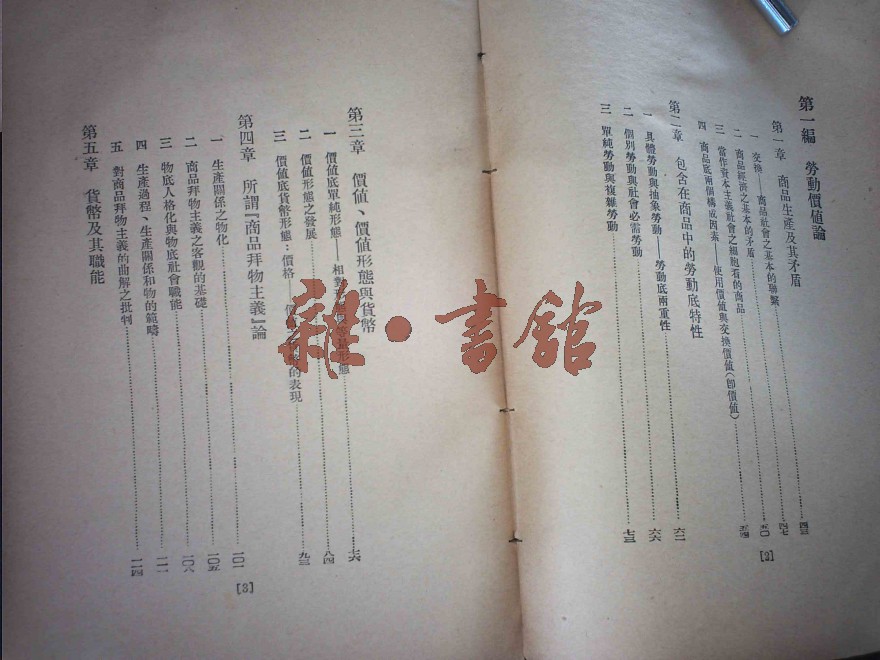 第一編　勞動價値論
第一章　商品生產及其矛盾
一　交換——商品社會之基本的聯繫……四三
二　商品經濟之基本的矛盾……四七
三　當作資本主義社會之細胞看的商品……五〇
四　商品底兩個構成因素——使用價値與交換價値(卽價値)……五四
第二章　包含在商品中的勞動底特性
一　具體勞動與抽象勞動——勞動底兩重性……六二
二　個別勞動與社會必需勞動……六六
三　單純勞動與複雜勞動……七三
[2]
第三章　價値、價値形態與貨幣
一　價値底單純形態——相對形態……形態……七六
二　價値形態之發展……八四
三　價値底貨幣形態：價格——價値……的表現……九三
第四章　所謂『商品拜物主義』論
一　生產關係之物化……一〇一
二　商品拜物主義之客觀的基礎……一〇五
三　物底人格化與物底社會職能……一〇八
四　生產過程、生產關係和物的範疇……一一一
五　對商品拜物主義的曲解之批判……一一四
第五章　貨幣及其職能
[3]
雜·書館